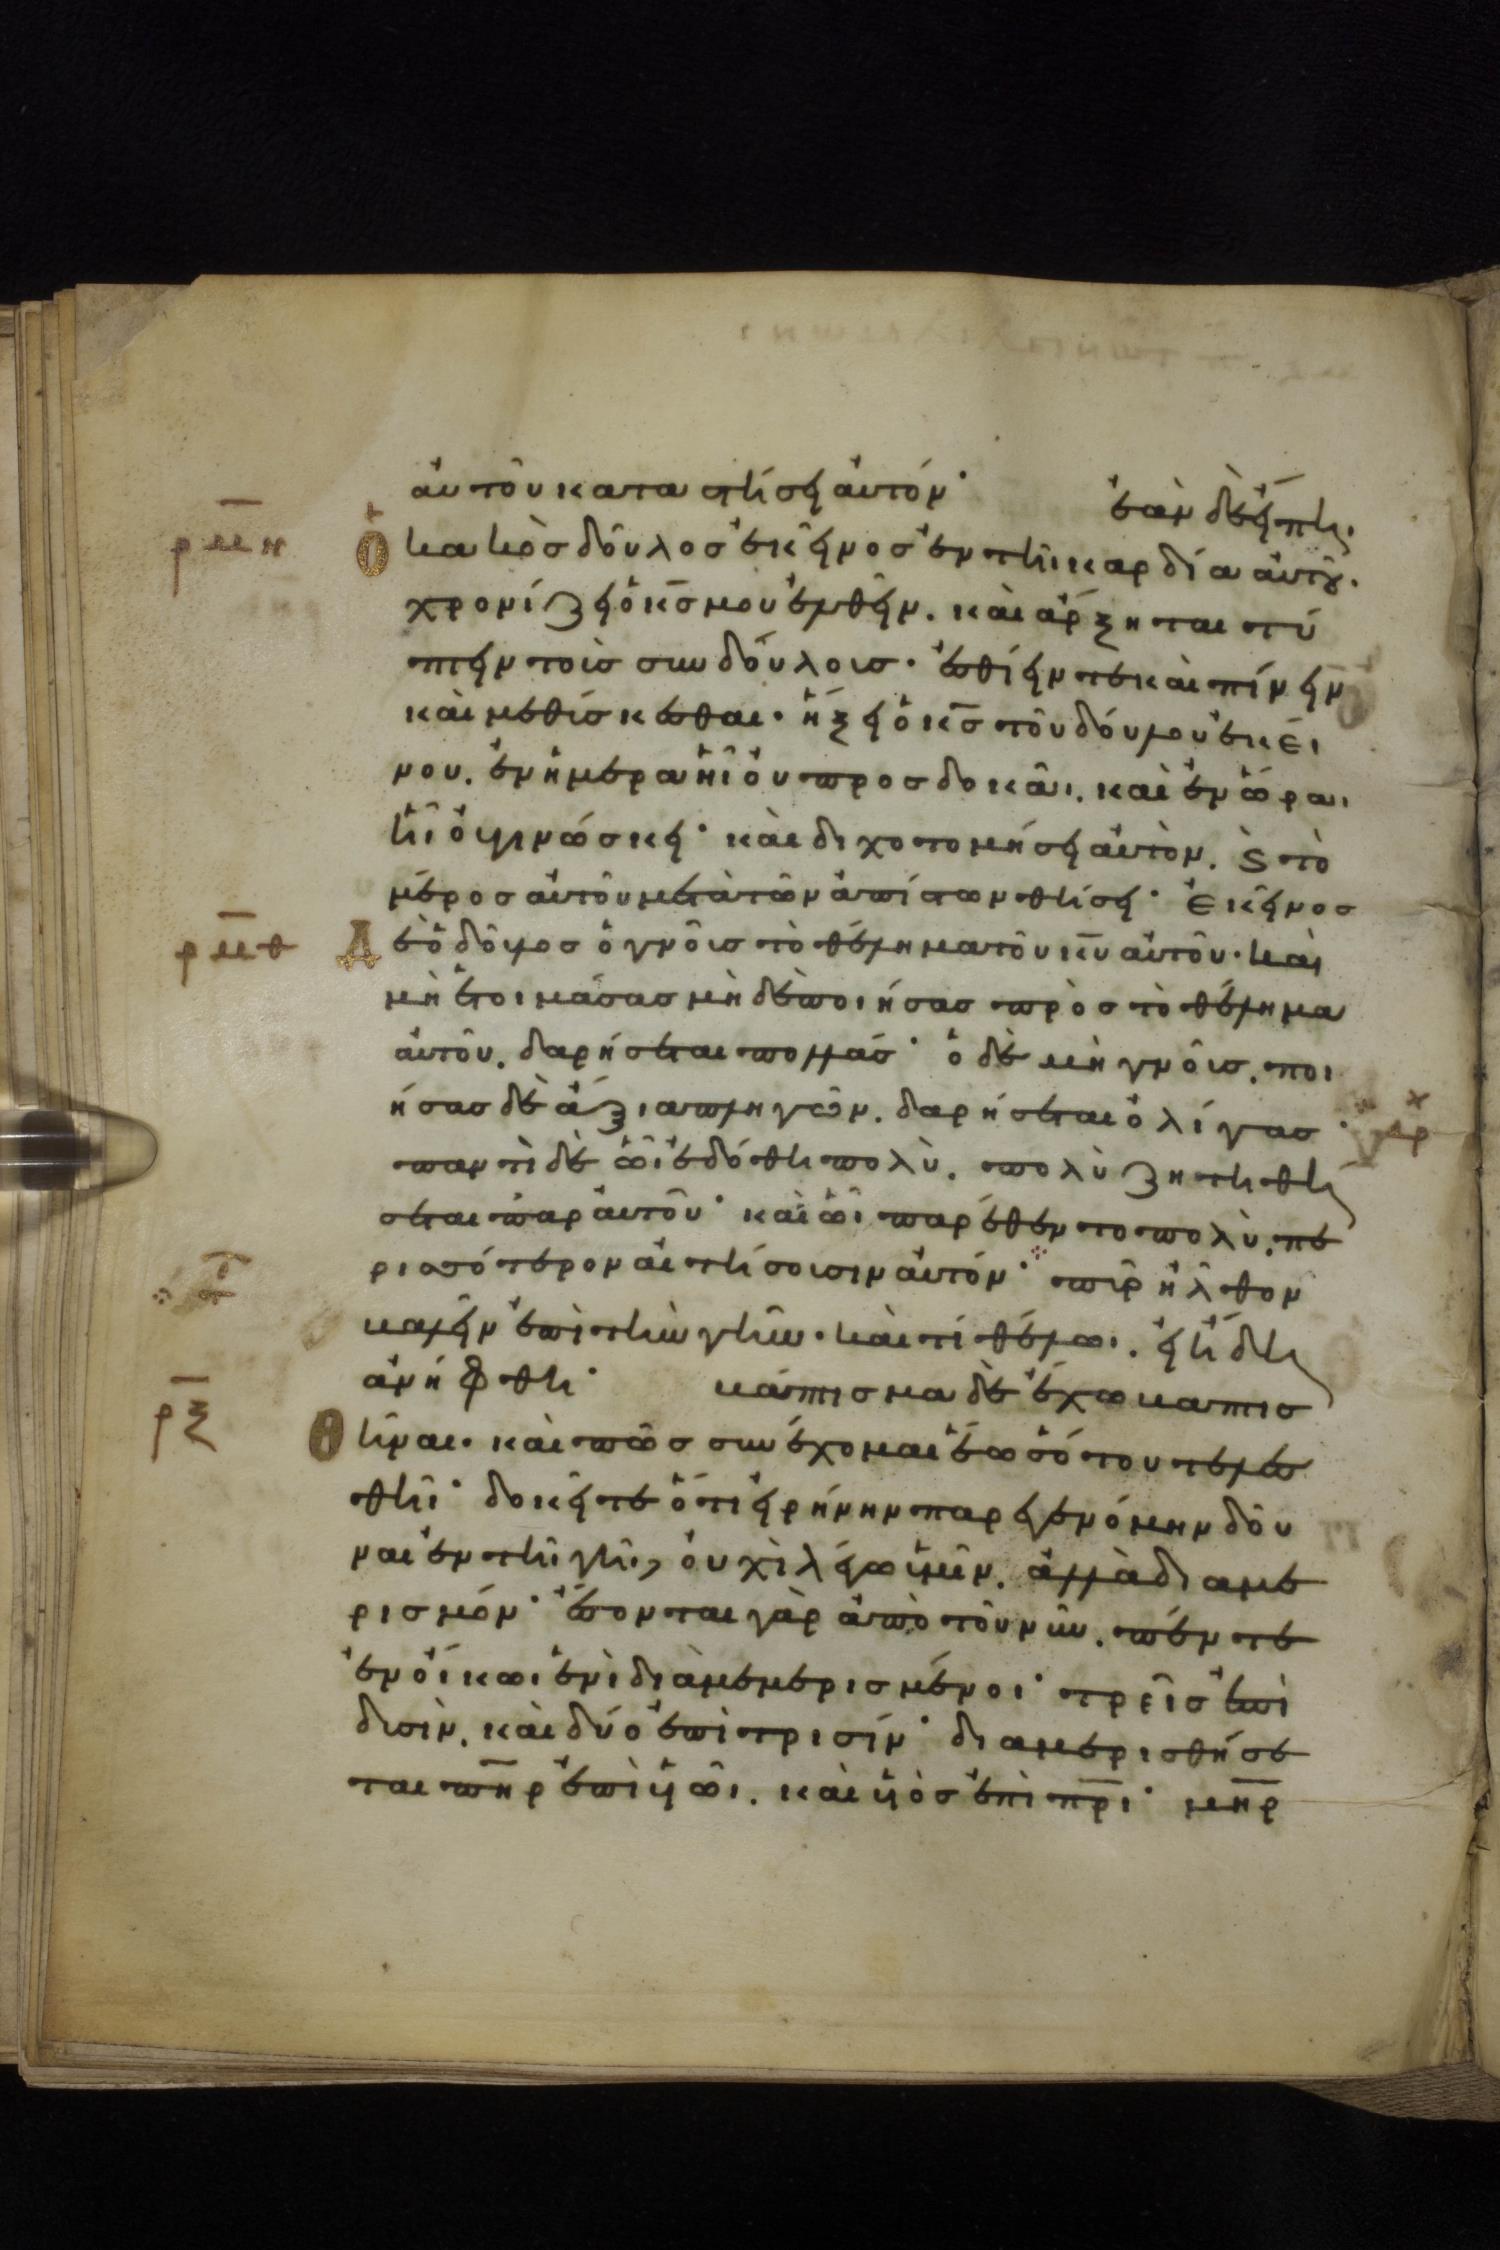 αὐτοῦ καταστήσει αὐτόν· ἐὰν δὲ εἴπη
ρμη ὁ κακὸσ δοῦλοσ ἐκεῖνοσ ἐν τῆι καρδία αὐτοῦ.
χρονίζει ὁ κσ μου ἐλθεῖν. καὶ ἄρξηται τύ
πτειν τοὺσ συνδούλουσ· ἐσθίειν τε καὶ πίνειν
καὶ μεθύσκεσθαι· ἥξει ὁ κσ τοῦ δούλου ἐκεί
νου. ἐν ἡμέρα ἧι οὐ προσδοκᾶι. καὶ ἐν ὥραι
ἧι οὐ γινώσκει· καὶ διχοτομήσει αὐτὸν. ϗ τὸ
μέροσ αὐτοῦ μετὰ τῶν ἀπίστων θήσει· ἐκεῖνοσ
ρμθ δὲ ὁ δοῦλοσ ὁ γνοὺσ τὸ θέλημα τοῦ κυ αὐτοῦ. καὶ
μὴ ἑτοιμάσασ μὴ δὲ ποιήσασ πρὸσ τὸ θέλημα
αὐτοῦ. δαρήσεται πολλάσ· ὁ δὲ μὴ γνοὺσ. ποι
ήσασ δὲ ἄξια πληγῶν. δαρήσεται ὀλίγασ·
παντὶ δὲ ὧι ἐδόθη πολὺ. πολὺ ζητηθή
σεται παρ αὐτοῦ· καὶ ὧι παρέθεντο πολὺ. πε
ρισσότερον αἰτήσουσιν αὐτόν· πῦρ ἦλθον
βαλεῖν ἐπὶ τὴν γῆν. καὶ τί θέλω. εἰ ἤδη
ἀνήφθη· βάπτισμα δὲ ἔχω βαπτισ
ρξ θῆναι. καὶ πῶσ συνέχομαι ἕωσ ὅτου τελεσ
θῆι· δοκεῖτε ὅτι εἰρήνην παρεγενόμην δοῦ
ναι ἐν τῆι γῆι, οὐχὶ λέγω ὑμῖν. ἀλλὰ διαμε
ρισμόν· ἔσονται γὰρ ἀπὸ τοῦ νῦν. πέντε
ἐν οἴκωι ἑνὶ διαμεμερισμένοι· τρεῖσ ἐπὶ
δυσὶν. καὶ δύο ἐπὶ τρισίν· διαμερισθήσε
ται πηρ ἐπὶ υἱῶι. καὶ υἱὸσ ἐπὶ πρι· μηρ